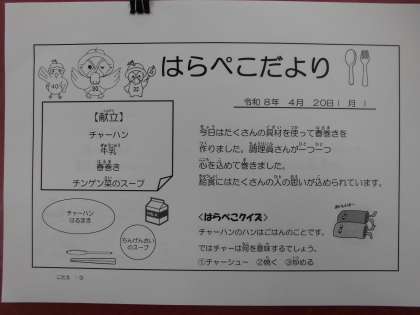 はらぺこだより
令和 8年 4月 20日( 月 )
【献立】
チャーハン
牛乳
春巻き
チンゲン菜のスープ
今日はたくさんの具材を使って春巻きを
作りました。調理員さんが一つ一つ
心を込めて巻きました。
給食にはたくさんの人の思いが込められています。
チャーハン
はるまき
ちんげんさい
のスープ
<はらぺこクイズ>
チャーハンのハンはごはんのことです。
ではチャーは何を意味するでしょう。
①チャーシュー ②焼く ③炒める